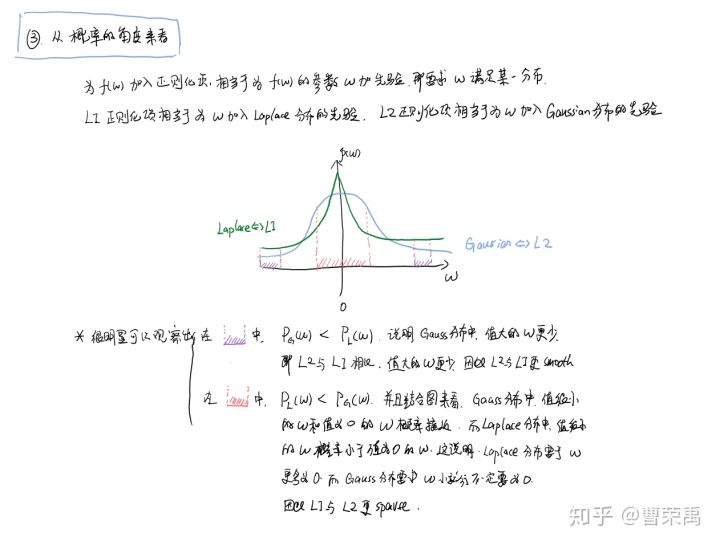 ③. 从概率的角度来看
为 f(w) 加入正则化项, 相当于为 f(w) 的参数 w 加先验, 即要求 w 满足某一分布.
L1 正则化项相当于为 w 加入 Laplace 分布的先验, L2 正则化项相当于为 w 加入 Gaussian 分布的先验
p(w)
Laplace⇔L1
Gaussian⇔L2
w
0
* 很明显可以观察出 在 中, PG(w) < PL(w). 说明 Gauss 分布中, 值大的 w 更少.
即 L2 与 L1 相比, 值大的 w 更少. 因此 L2 与 L1 更 smooth
在 中, PL(w) < PG(w). 并且结合图来看, Gauss 分布中, 值较小
的 w 和值为 0 的 w 概率接近. 而 Laplace 分布中, 值较小
的 w 概率小于值为 0 的 w. 这说明, Laplace 分布要求 w
更多为 0. 而 Gauss 分布要求 w 小 不一定要为 0.
因此 L1 与 L2 更 sparse.
知乎 @曹荣禹